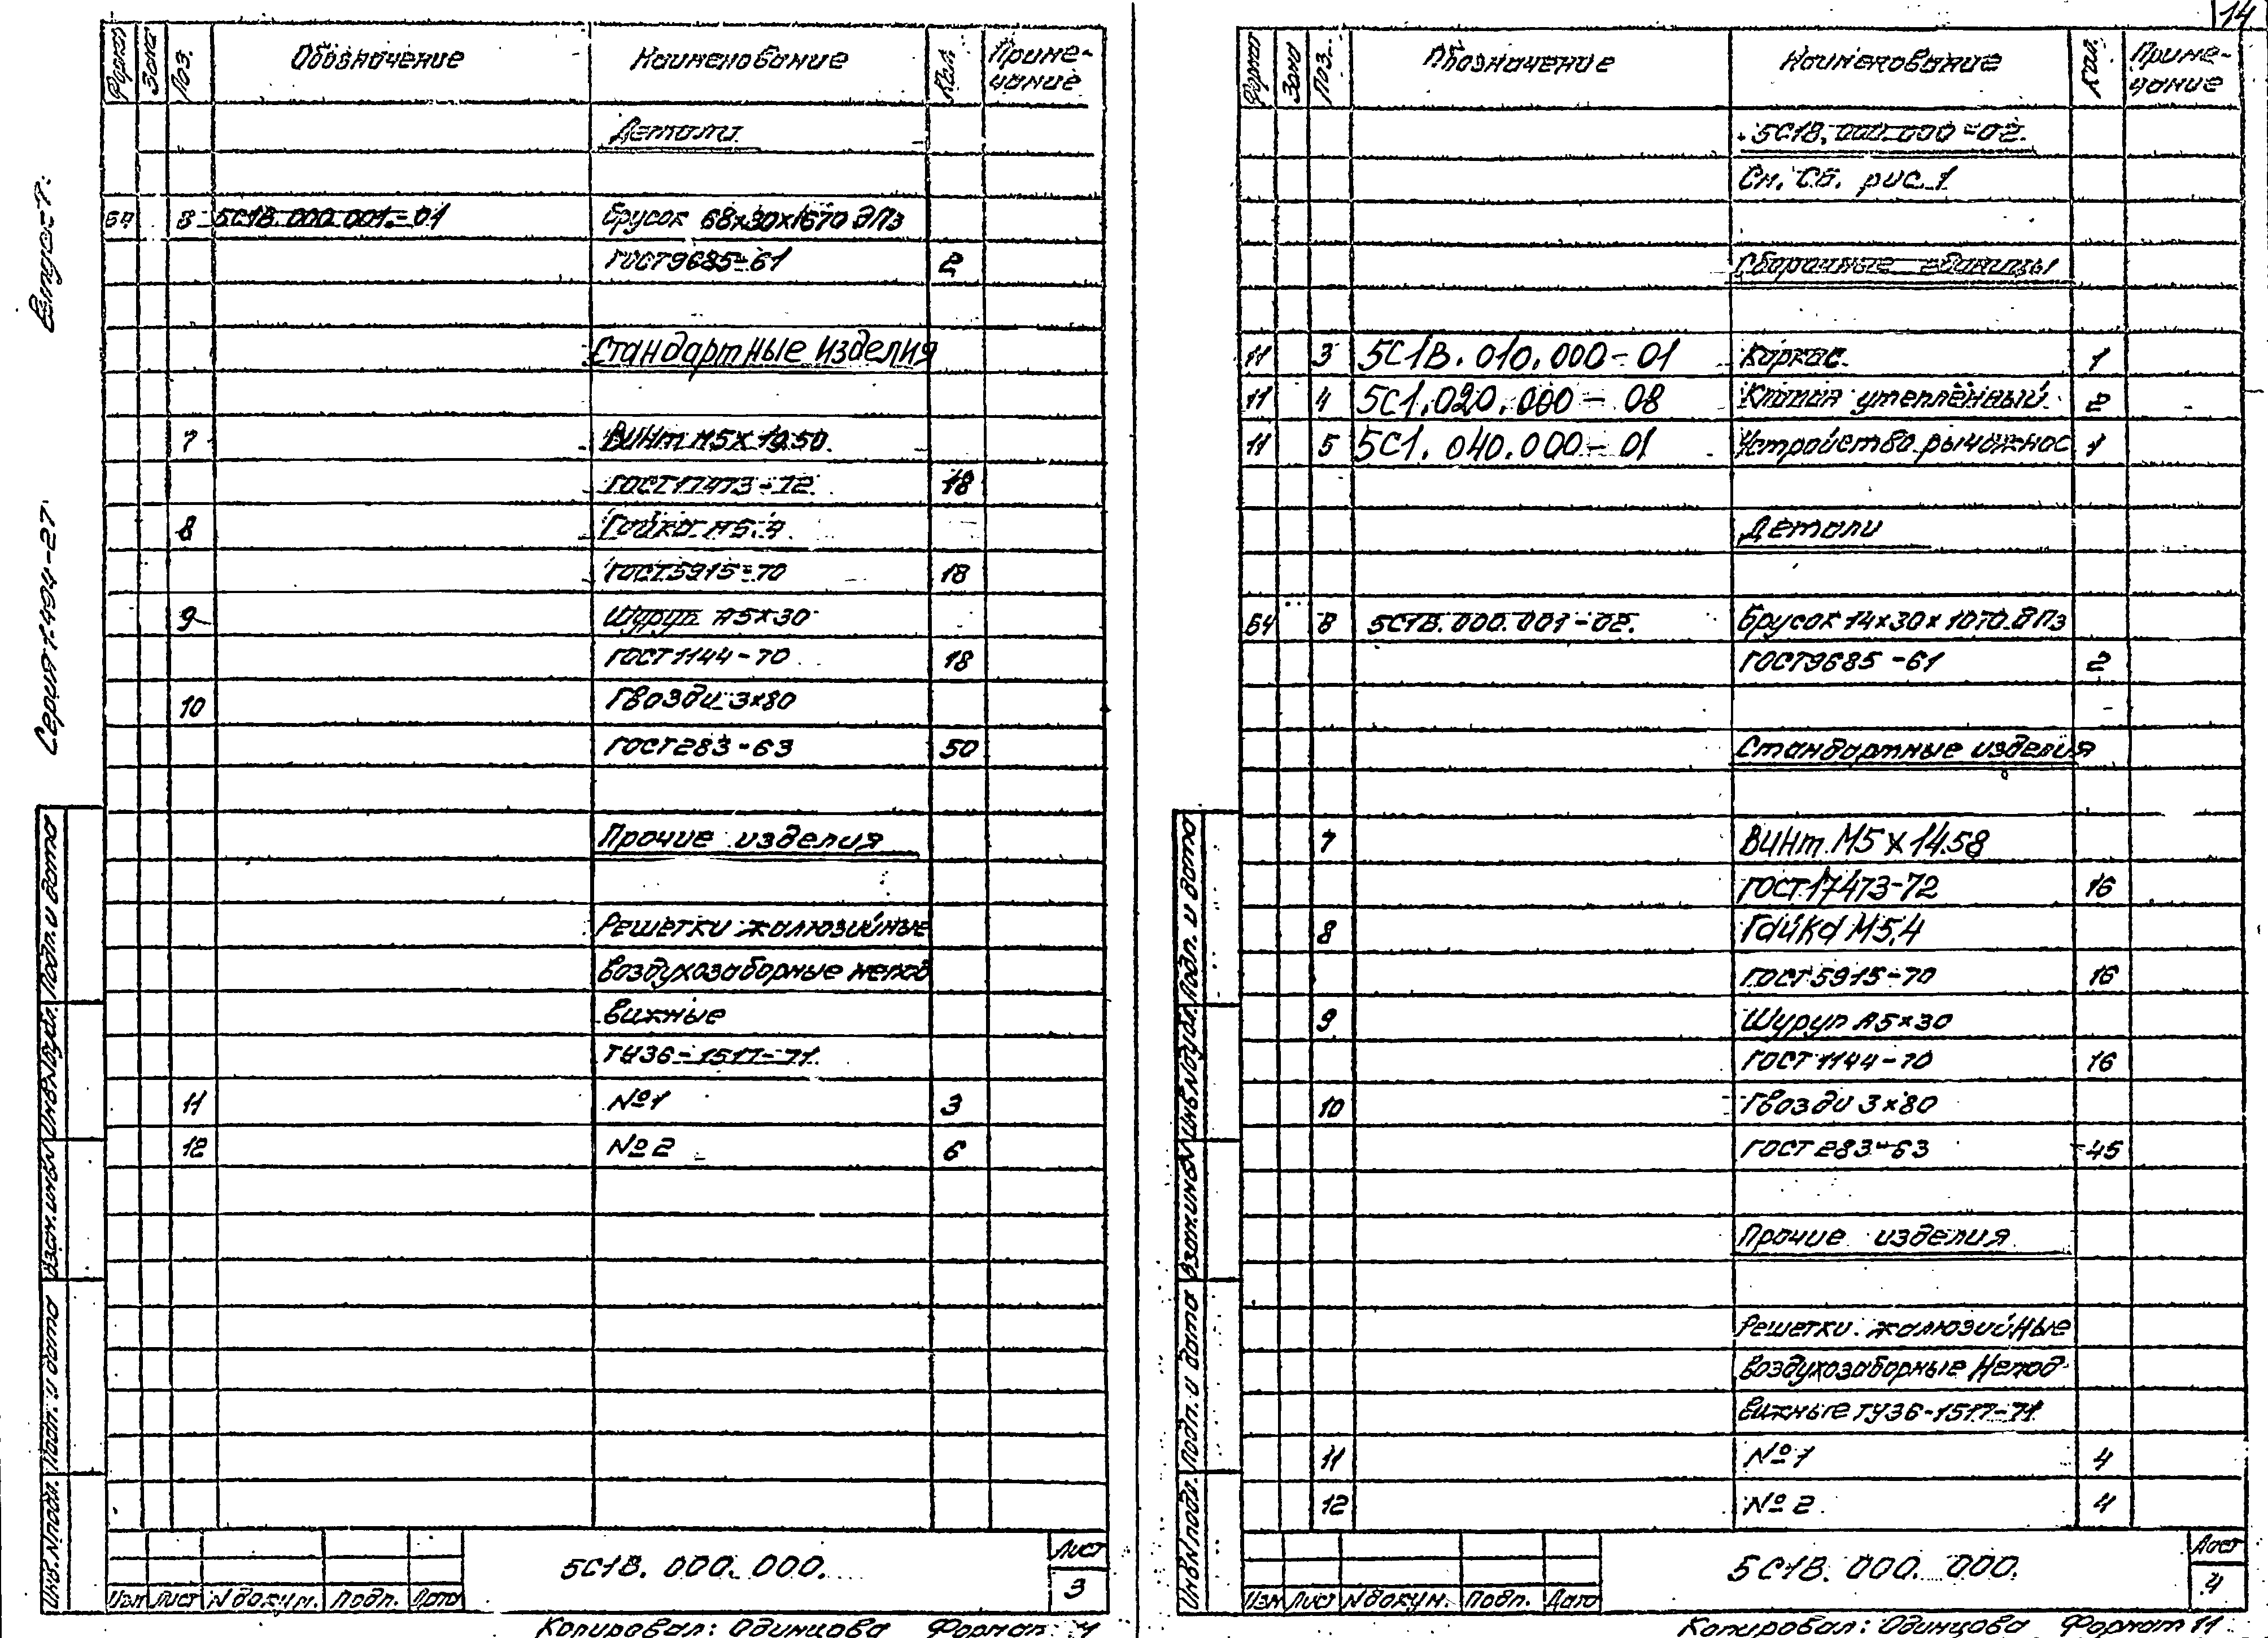 14
Серия 1.494-27
Формат Зона Поз. Обозначение Наименование Кол. Приме-
чание
Детали
Б4 8 5С1В.000.001-01 Брусок 68х30х1670
ГОСТ 9685-61 2
Стандартные изделия
7 Винт М5х
ГОСТ 17473-72 18
8 Гайка М5.4
ГОСТ 5915-70 18
9 Шуруп А5х30
ГОСТ 1144-70 18
10 Гвозди 3х80
ГОСТ 283-63 50
Прочие изделия
Решетки жалюзийные
воздухозаборные непод
вижные
ТУ36-1517-71
11 №1 3
12 №2 6
Инв.№подл. Подп. и дата Взам.инв.№ Инв.№дубл. Подп. и дата
Изм Лист №докум. Подп. Дата
5С1В.000.000.
Лист
3
Копировал: Одинцова Формат
Формат Зона Поз. Обозначение Наименование Кол. Приме-
чание
5С1В.000.000-02.
См. Сб. рис.1
Сборочные единицы
11 3 5С1В.010.000-01 Каркас 1
11 4 5С1.020.000-08 Клапан утеплённый 2
11 5 5С1.040.000-01 Устройство рычажное 1
Детали
Б4 5С1В.000.001-02. Брусок 14х30х1070
ГОСТ 9685-61 2
Стандартные изделия
7 Винт М5х14.58
ГОСТ 17473-72 16
8 Гайка М5.4
ГОСТ 5915-70 16
9 Шуруп А5х30
ГОСТ 1144-70 16
10 Гвозди 3х80
ГОСТ 283-63 45
Прочие изделия
Решетки жалюзийные
воздухозаборные Непод
вижные ТУ36-1517-71
11 №1 4
12 №2 4
Инв.№подл. Подп. и дата Взам.инв.№ Инв.№дубл. Подп. и дата
Изм Лист №докум. Подп. Дата
5С1В.000.000.
Лист
4
Копировал: Одинцова Формат 11